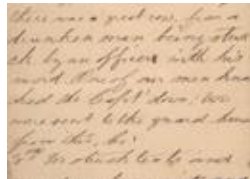 there was a great row, from a
drunken man being struck
ck by an officer with his
sword One of our men knoc
ked the Capt down. two
were sent to the guard house
from this, he
struck tents and